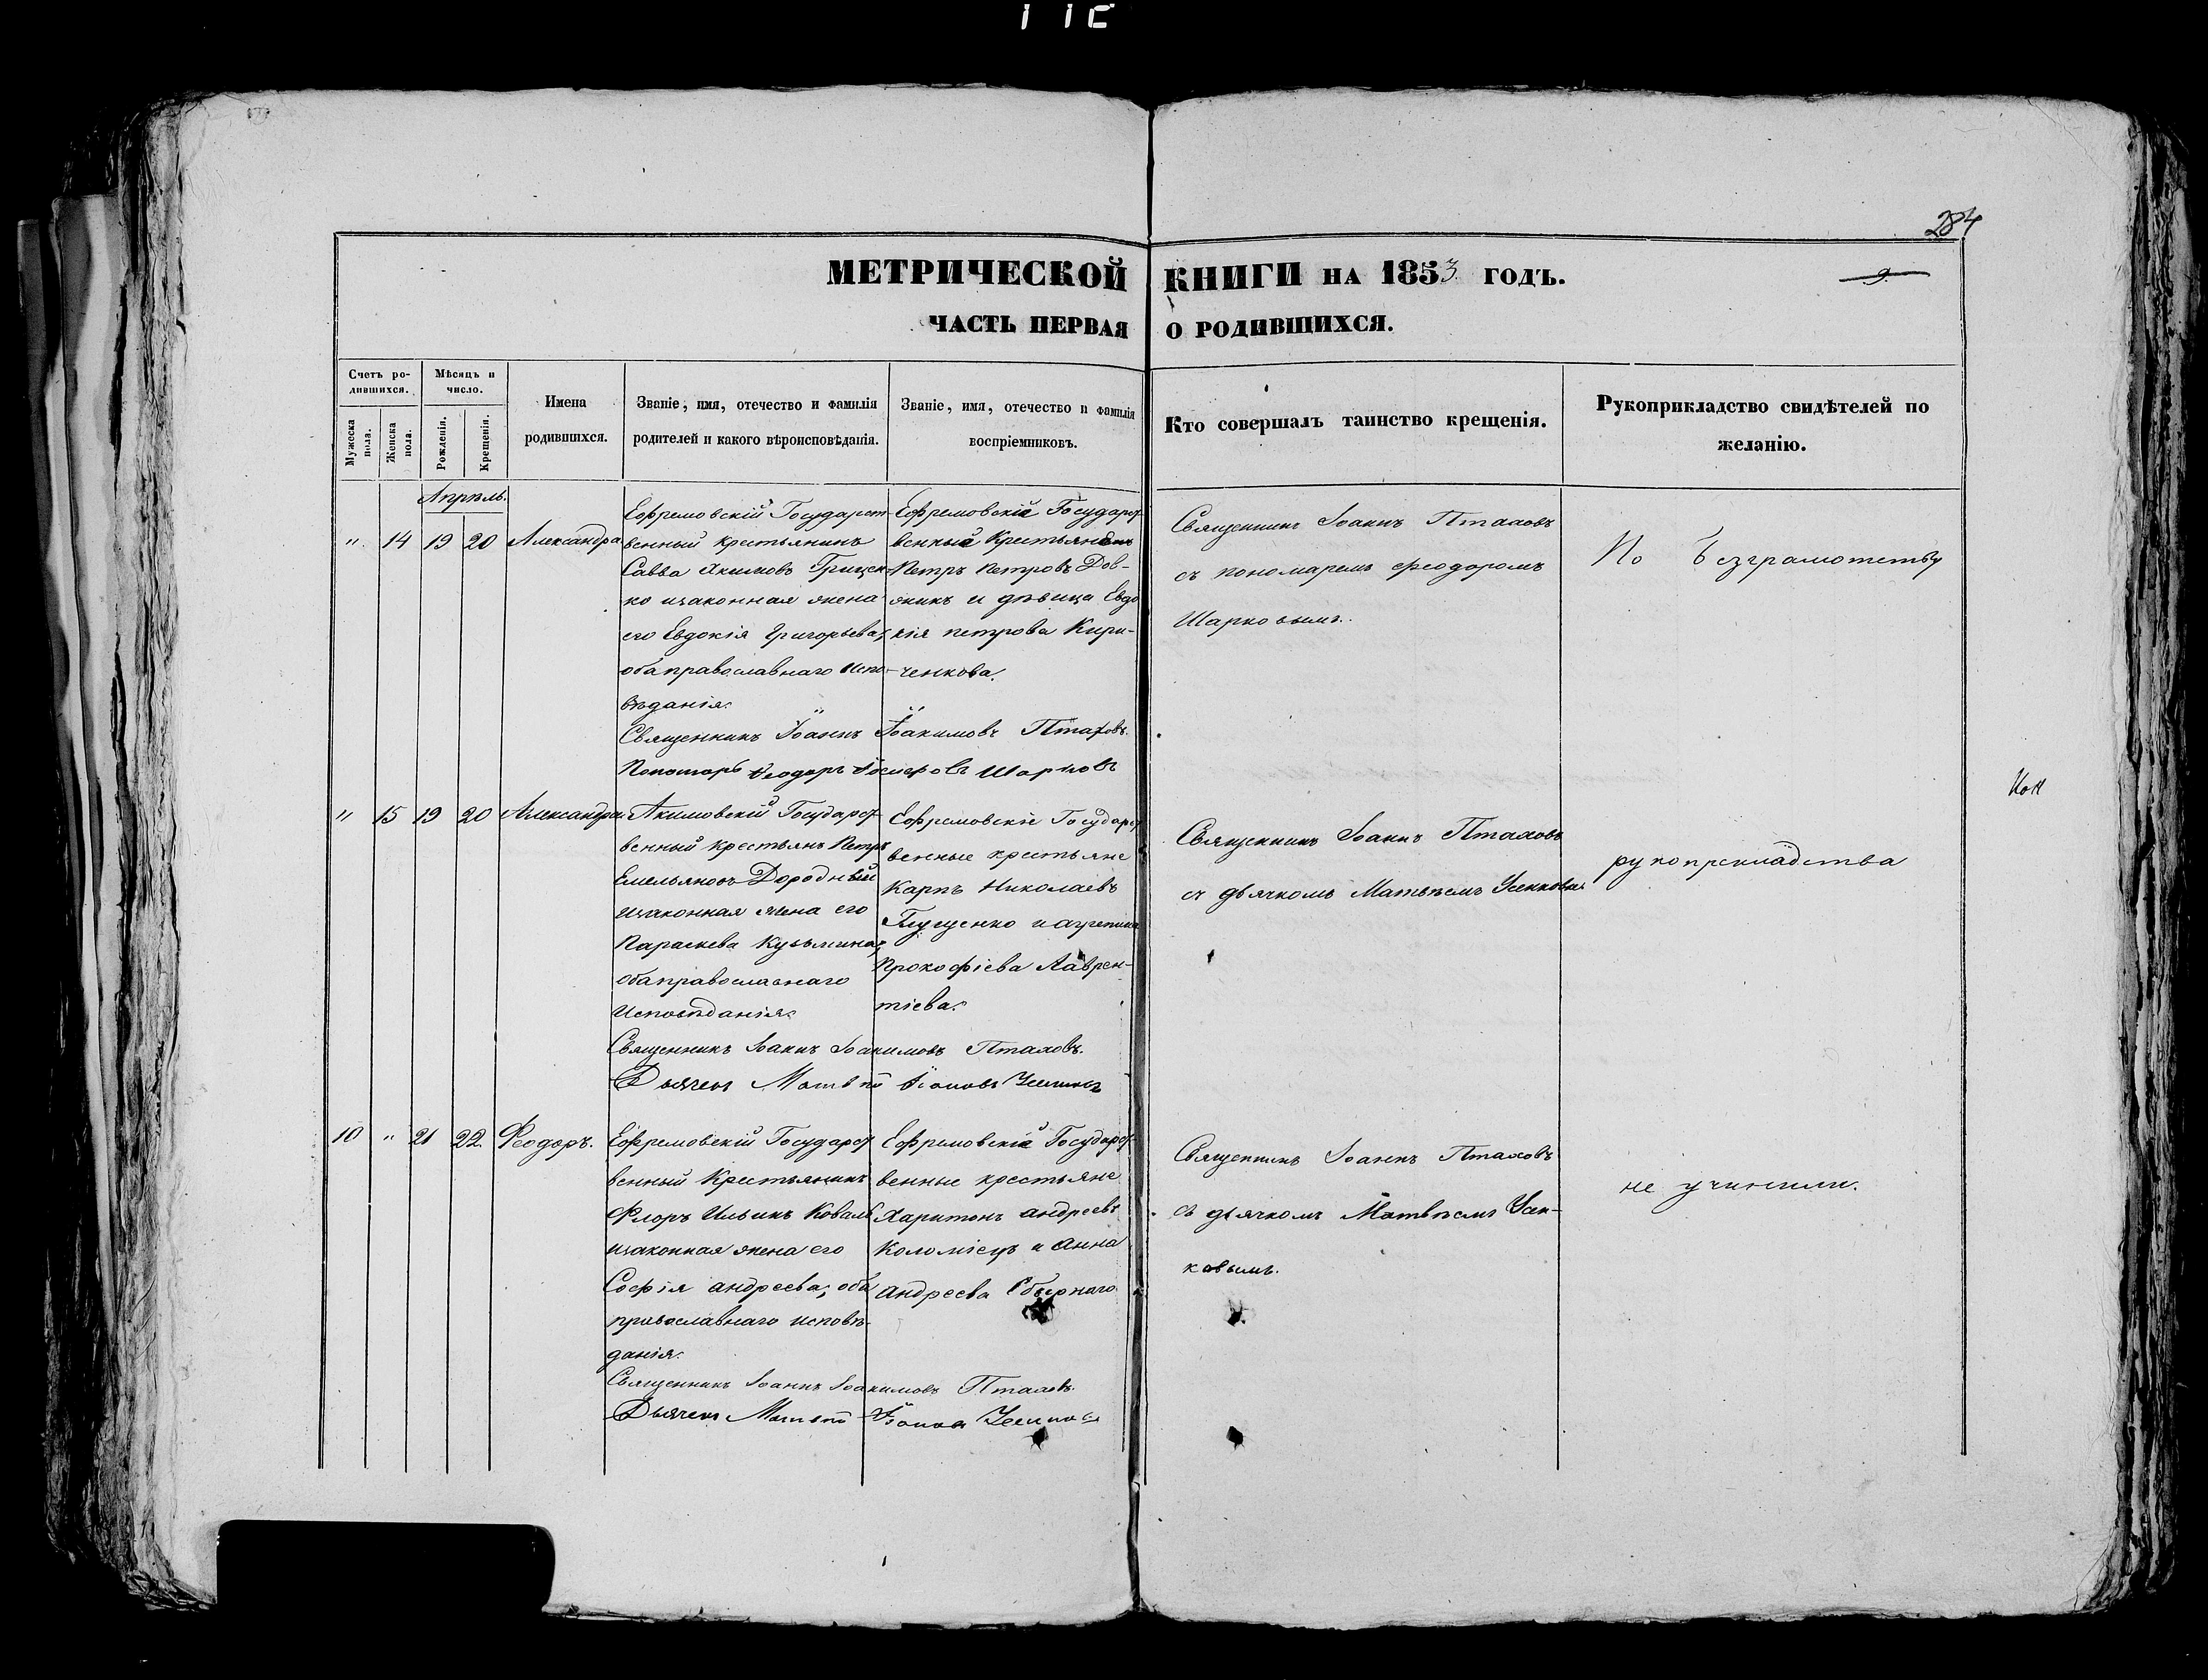 284
МЕТРИЧЕСКОЙ КНИГИ НА 1853 ГОДЪ.
9.
ЧАСТЬ ПЕРВАЯ О РОДИВШИХСЯ.
Счетъ ро-
дившихся.
Мужеска пола.
Женска пола.
Мѣсяцъ и
число.
Рожденія.
Крещенія.
Имена
родившихся.
Званіе, имя, отечество и фамилія
родителей и какого вѣроисповѣданія.
Званіе, имя, отечество и фамилія
воспріемниковъ.
Кто совершалъ таинство крещенія.
Рукоприкладство свидѣтелей по
желанію.
Апрѣль.
" 14 19 20 Александра
Ефремовскій Государст-
венный крестьянинъ
Савва Акимовъ Грицен-
ко изаконная жена
его Евдокія Григорьева,
оба православнаго испо-
вѣданія.
Ефремовскій Государст-
венный Крестьянинъ
Петръ Петровъ Дов-
жикъ и дѣвица Евдо
кія петрова Кири-
ченкова.
Священникъ Іоаннъ Птаховъ
съ пономаремъ Феодоромъ
Шарковымъ.
По безграмотству
Священникъ Іоаннъ Іоакимовъ Птаховъ.
Пономарь Феодоръ Іосифовъ Шарковъ
" 15 19 20 Александра
Акимовскій Государст-
венный крестьянъ Петръ
Емельяновъ Дородный
изаконная жена его
Параскева Кузьмина,
оба православнаго
исповѣданія.
Ефремовскіе Государст
венные крестьяне
Карпъ Николаевъ
и
Прокофіева Лаврен-
тіева.
Священникъ Іоаннъ Птаховъ
съ дьячкомъ Матвѣемъ Усенковымъ
рукоприкладства
Священникъ Іоаннъ Іоакимовъ Птаховъ.
Дьячекъ Матвѣй Усенковъ
10 " 21 22 Феодоръ.
Ефремовскій Государст
венный Крестьянинъ
Флоръ Ильинъ Коваль
изаконная жена его
Софія андреева, оба
православнаго исповѣ-
данія.
Ефремовскіе Государст-
венные крестьяне
Харитонъ андреевъ
Коломіецъ и Анна
андреева
Священникъ Іоаннъ Птаховъ
съ дьячкомъ Матвѣемъ Усен-
ковымъ.
не учинили.
Священникъ Іоаннъ Іоакимовъ Птаховъ.
Дьячекъ Матвѣй Усенковъ